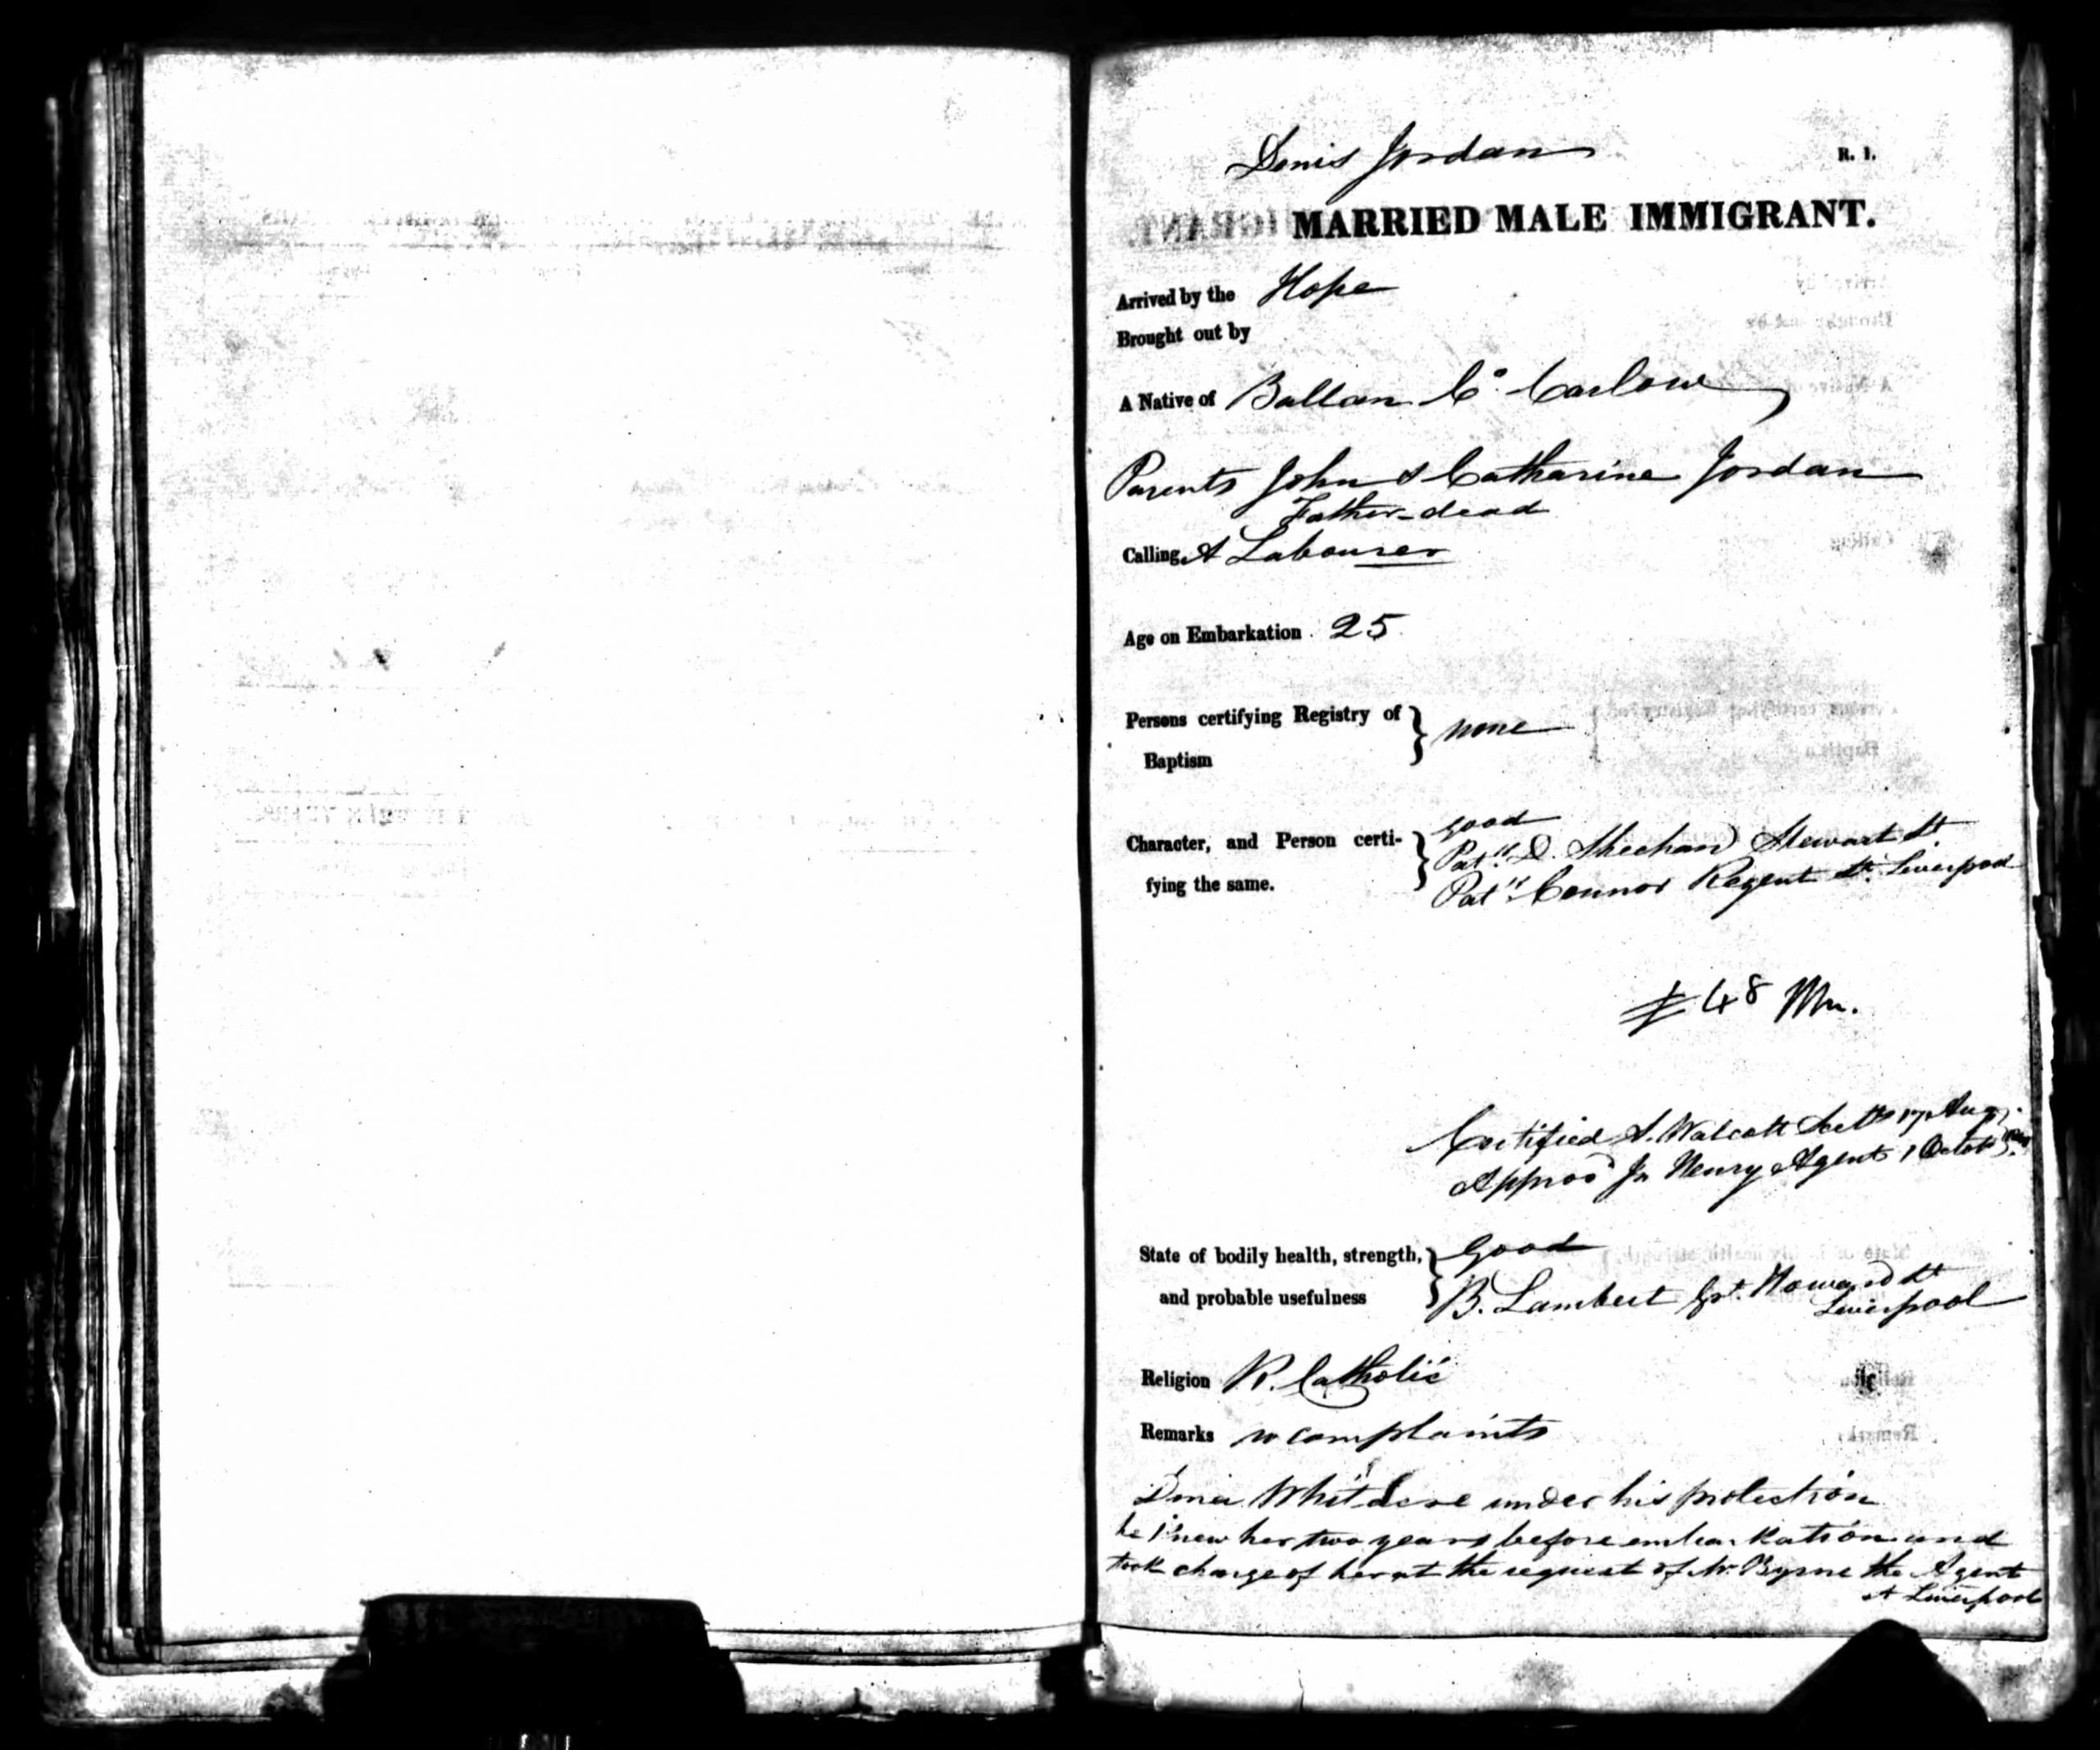 Denis Jordan
R. 1.
MARRIED MALE IMMIGRANT.
Arrived by the Hope
Brought out by
A Native of Ballon Co. Carlow
Parents John & Catharine Jordan
Father dead
Calling A Labourer
Age on Embarkation 25
Persons certifying Registry of
Baptism } none
Character, and Person certi-
fying the same. } good
Patk. D. Sheehan Stewart St
Patk. Connor Regent St. Liverpool
48 Mn.
Certified S. Walcott 17 Aug
Approd Jn Henry Agent 1 Octob
State of bodily health, strength,
and probable usefulness } Good
B. Lambert Gt. Howard St
Liverpool
Religion R. Catholic
Remarks no complaints
under his protection
he knew her two years before embarkation and
took charge of her at the request of Mr. Byrne the Agent
at Liverpool